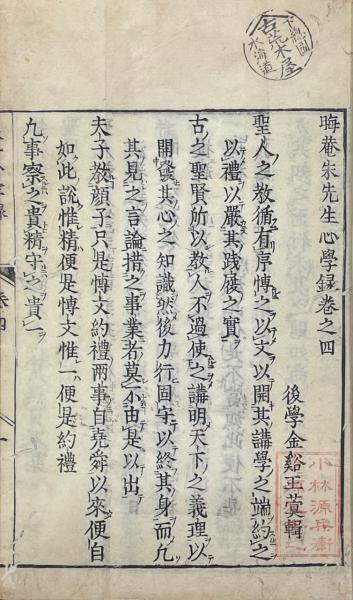 下總國
古荒木屋
水海道
晦菴朱先生心學録卷之四
後學金谿王蓂輯
小林源兵衛
聖人之教循有序博之以文以開其講學之端約之
以禮以嚴其踐履之實
古之聖賢所以教人不過使之講明天下之義理以
開發其心之知識然後力行固守以終其身而凡
其見之言論措之事業者莫不由是以出
夫子教顏子只是博文約禮兩事自堯舜以來便自
如此說惟精便是博文惟一便是約禮
凡事察之貴精守之貴一